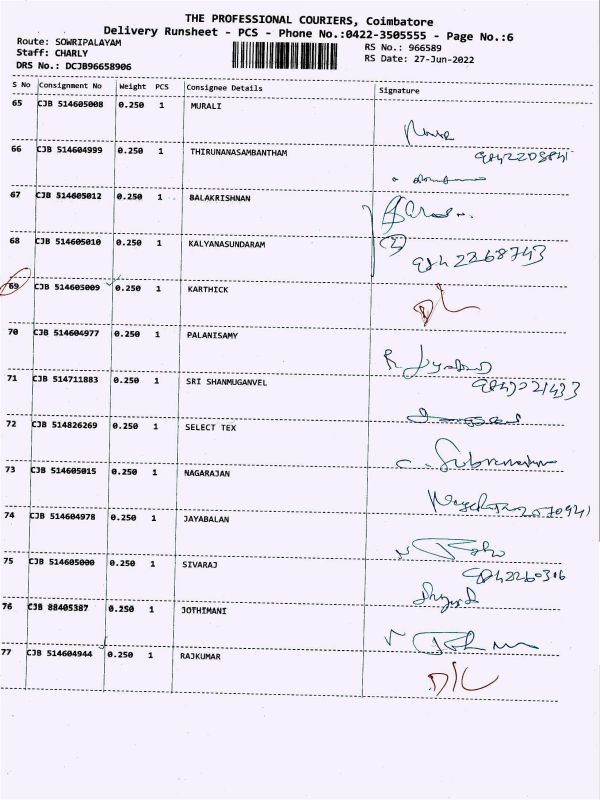 THE PROFESSIONAL COURIERS, Coimbatore
Delivery Runsheet - PCS - Phone No.:0422-3505555 - Page No.:6
Route: SOWRIPALAYAM
Staff: CHARLY
DRS No.: DCJB96658906
RS No.: 966589
RS Date: 27-Jun-2022
S No Consignment No Weight PCS Consignee Details Signature
65 CJB 514605008 0.250 1 MURALI
66 CJB 514604999 0.250 1 THIRUNANASAMBANTHAM
67 CJB 514605012 0.250 1 BALAKRISHNAN
68 CJB 514605010 0.250 1 KALYANASUNDARAM
9842268743
69 CJB 514605009 0.250 1 KARTHICK
70 CJB 514604977 0.250 1 PALANISAMY
71 CJB 514711883 0.250 1 SRI SHANMUGANVEL
72 CJB 514826269 0.250 1 SELECT TEX
73 CJB 514605015 0.250 1 NAGARAJAN
74 CJB 514604978 0.250 1 JAYABALAN
75 CJB 514605000 0.250 1 SIVARAJ
9842260316
76 CJB 88405387 0.250 1 JOTHIMANI
77 CJB 514604944 0.250 1 RAJKUMAR
D/L